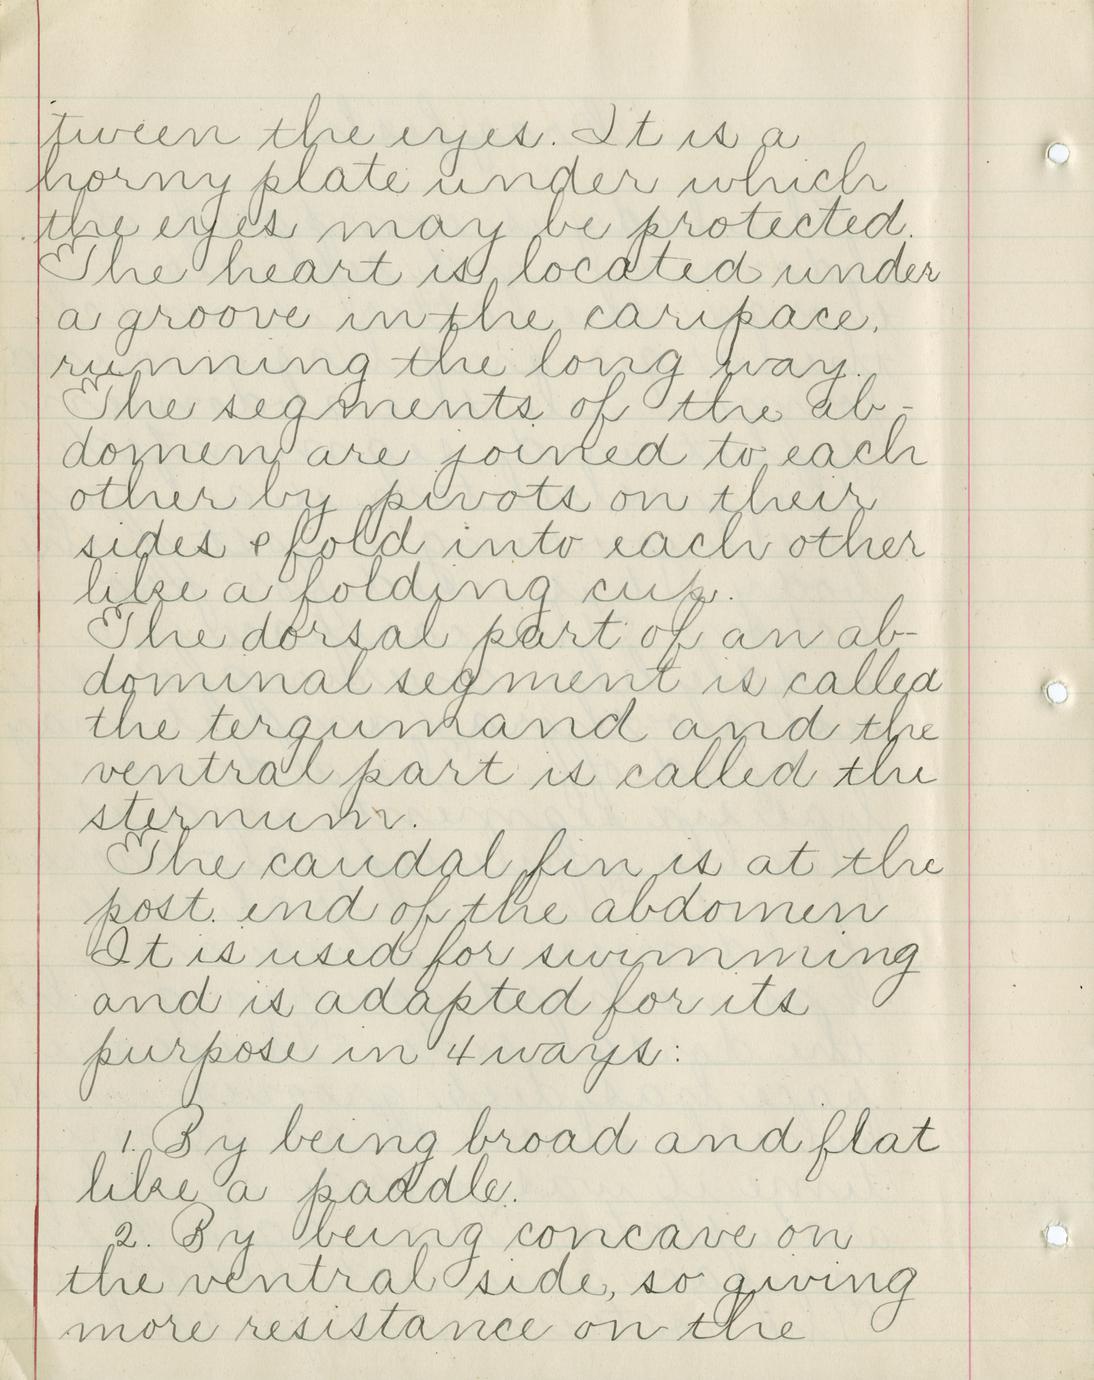 tween the eyes. It is a
horny plate under which
the eyes may be protected.
The heart is located under
a groove in the caripace,
running the long way.
The segments of the ab-
domen are joined to each
other by pivots on their
sides & fold into each other
like a folding cup.
The dorsal part of an ab-
dominal segment is called
the tergumand and the
ventral part is called the
sternum.
The caudal fin is at the
post. end of the abdomen
It is used for swimming
and is adapted for its
purpose in 4 ways:
1. By being broad and flat
like a paddle.
2. By being concave on
the ventral side, so giving
more resistance on the